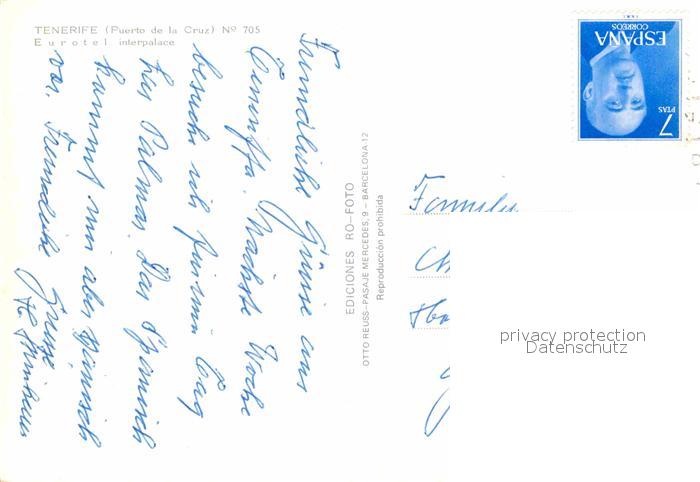 TENERIFE (Puerto de la Cruz) Nº 705
Eurotel interpalace
Freundliche Grüsse aus
Teneriffa. Nächste Woche
besuche ich für ein Tag
Las Palmas. Das Spanisch
kommt mir aber spanisch
vor. Freundliche Grüsse
H.
EDICIONES RO-FOTO
OTTO REUSS-PASAJE MERCEDES, 9 - BARCELONA-12
Reproducción prohibida
ESPAÑA
CORREOS
7 PTAS
Familie
privacy protection
Datenschutz